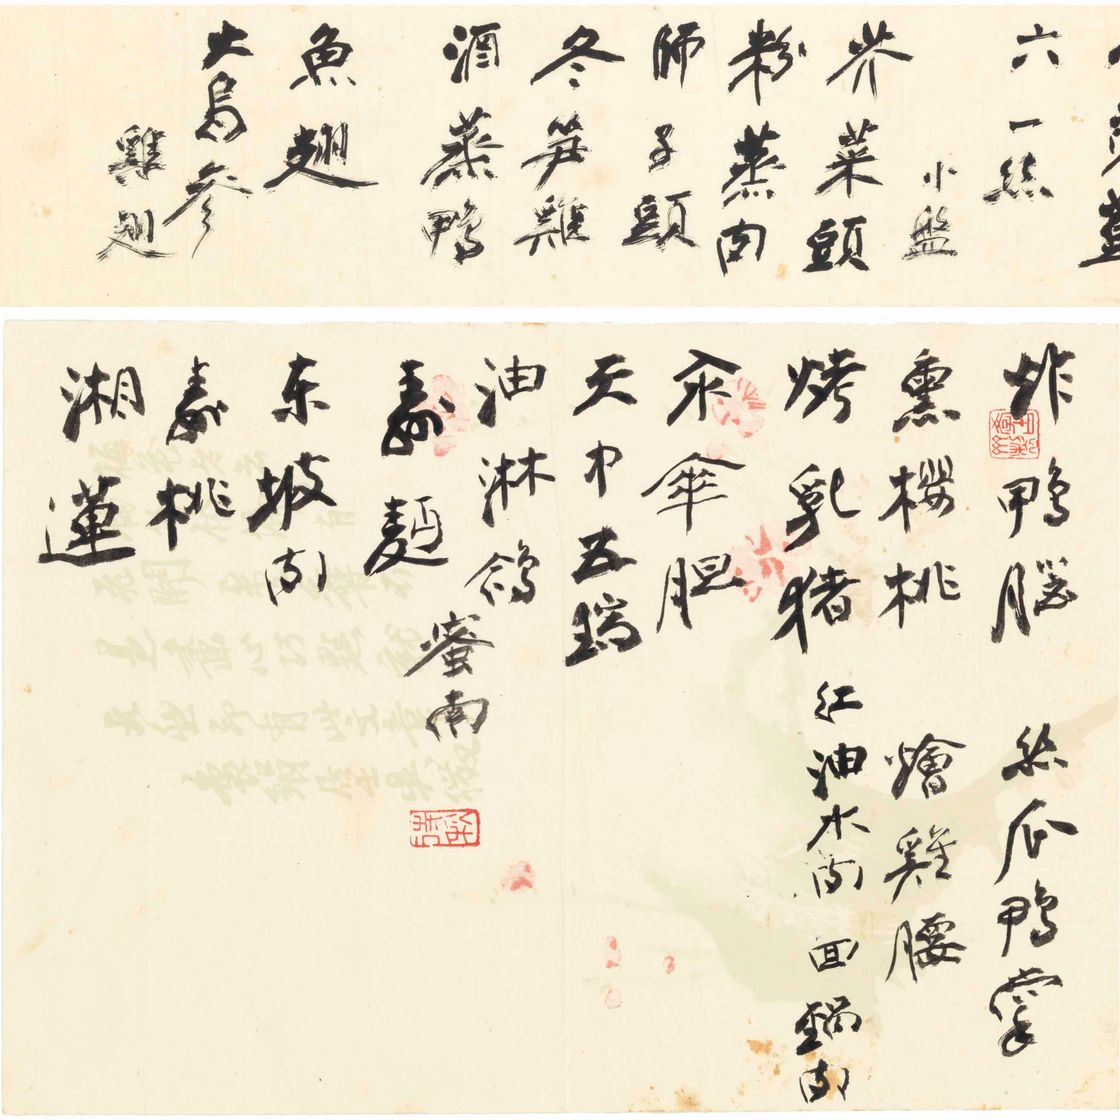 六一絲
小盤
芥菜頭
粉蒸肉
師子頭
冬笋雞
酒蒸鴨
魚翅
大烏參
雞翅
炸鴨腦 絲瓜鴨掌
熏櫻桃 燴雞腰
烤乳猪 红油水肉 回鍋肉
汆傘胆
天中五瑞
油淋鴿
蜜南
壽麵
东坡肉
壽桃
湘蓮